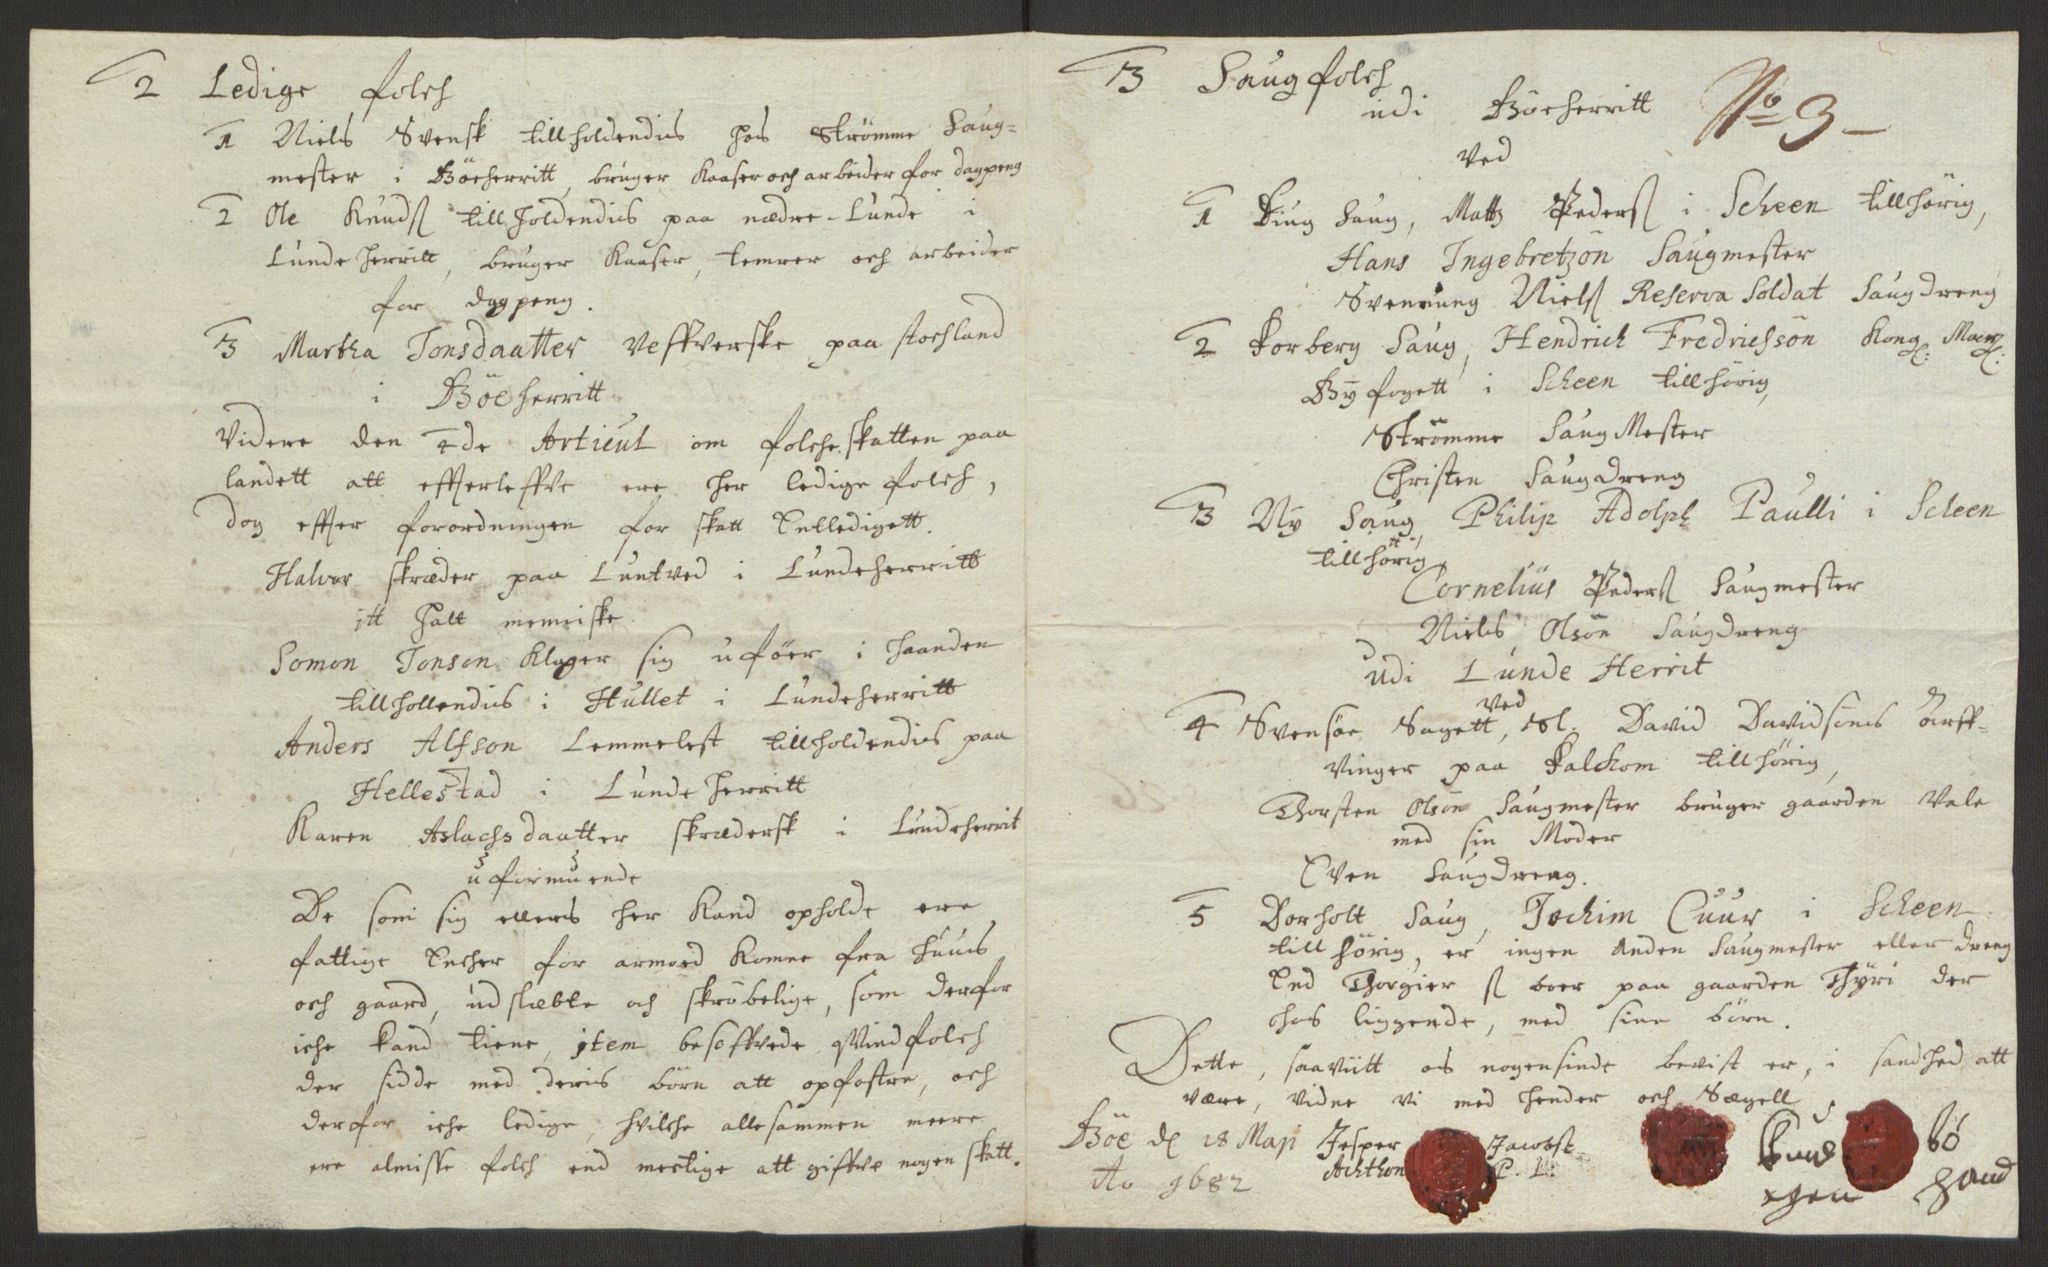 2 Ledige folch
1 Niels Svensk tillholdendis hos Strömme Saug-
mester i Böeherritt, bruger Kaaser och arbeider for dagpeng
2 Ole Knudß tillholdendis paa nædre-Lunde i
Lunde herritt, bruger Kaaser, temrer och arbeider
for dagpeng.
3 Martha Jonsdaatter Veffverske paa stochland
i Böeherritt
Videre den 4de Articul om folche skatten paa
landett att effterleffve ere her ledige folch,
dog effter forordningen for skatt Entledigett.
Halvor skræder paa Luntved i Lundeherritt
itt halt menniske
Somon Jonson klager sig uföer i haanden
tillhollendis i Hullet i Lundeherritt
Anders Alfson Lemmelest tillholdendis paa
Hellestad i Lunde herritt
Karen Aslachsdaatter skrædersk i Lundeherrit
uformuende
De som sig ellers her Kand opholde ere
fattige Encher for armoed komne fra huus
och gaard, udslæbte och skröbelige, som derfor
iche kand tiene, item besoffvede qvindfolch
der sidde med deris börn att opfostre, och
derfor iche ledige, hvilche allesammen meere
ere almisse folch end mectige att giffve nogen skatt.
3 Saugfolch
udi Böeherritt
No 3
Ved
1 Ting Saug, Matz Pederß i Scheen tillhörig,
Hans Ingebretzön Saugmester
Svennung Nielß Reserva Soldat Saugdreng
2 Forberg Saug, Hendrich Fredrichsön Kong: Maey:
Byfogett i Scheen tillhörig,
Strömme SaugMester
Christen Saugdreng
3 Ny Saug, Philip Adolph Paulli i Scheen
tillhörig,
Cornelius Pederß Saugmester
Niels Olsön Saugdreng
udi Lunde Herrit
ved
4 Svensöe Sagett, Sl. David Davidsöns Arff-
vinger paa Falchom tillhörig,
Thorsten Olsön Saugmester bruger gaarden Vale
med sin Moder
Even Saugdreng.
5 Dorholt Saug, Jochim Cuur i Scheen
tillhörig, er ingen anden Saugmester eller dreng
End Thorgier ß boer paa gaarden Thyri der
hos liggende, med sine börn.
Dette, saaviitt os nogensinde bevist er, i sandhed att
være, vidne vi med hender och Segell
Böe d 18 Maji Jesper Jacobsö Knud Bö
Ao 1682 Achthon P. L. egen hand